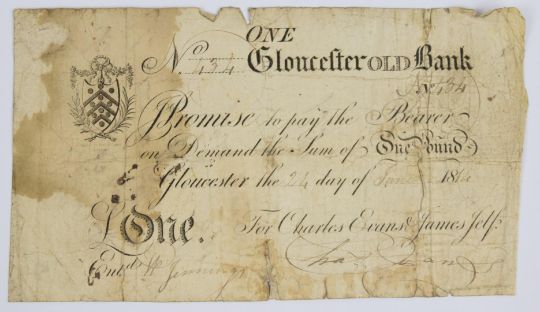 ONE
No 434 Gloucester OLD Bank
No 434
I Promise to pay the Bearer
on Demand the Sum of One Pound
Gloucester the 24 day of 18
£One. For Charles Evans & James Jelf:
Entd Jennings Chas Evans